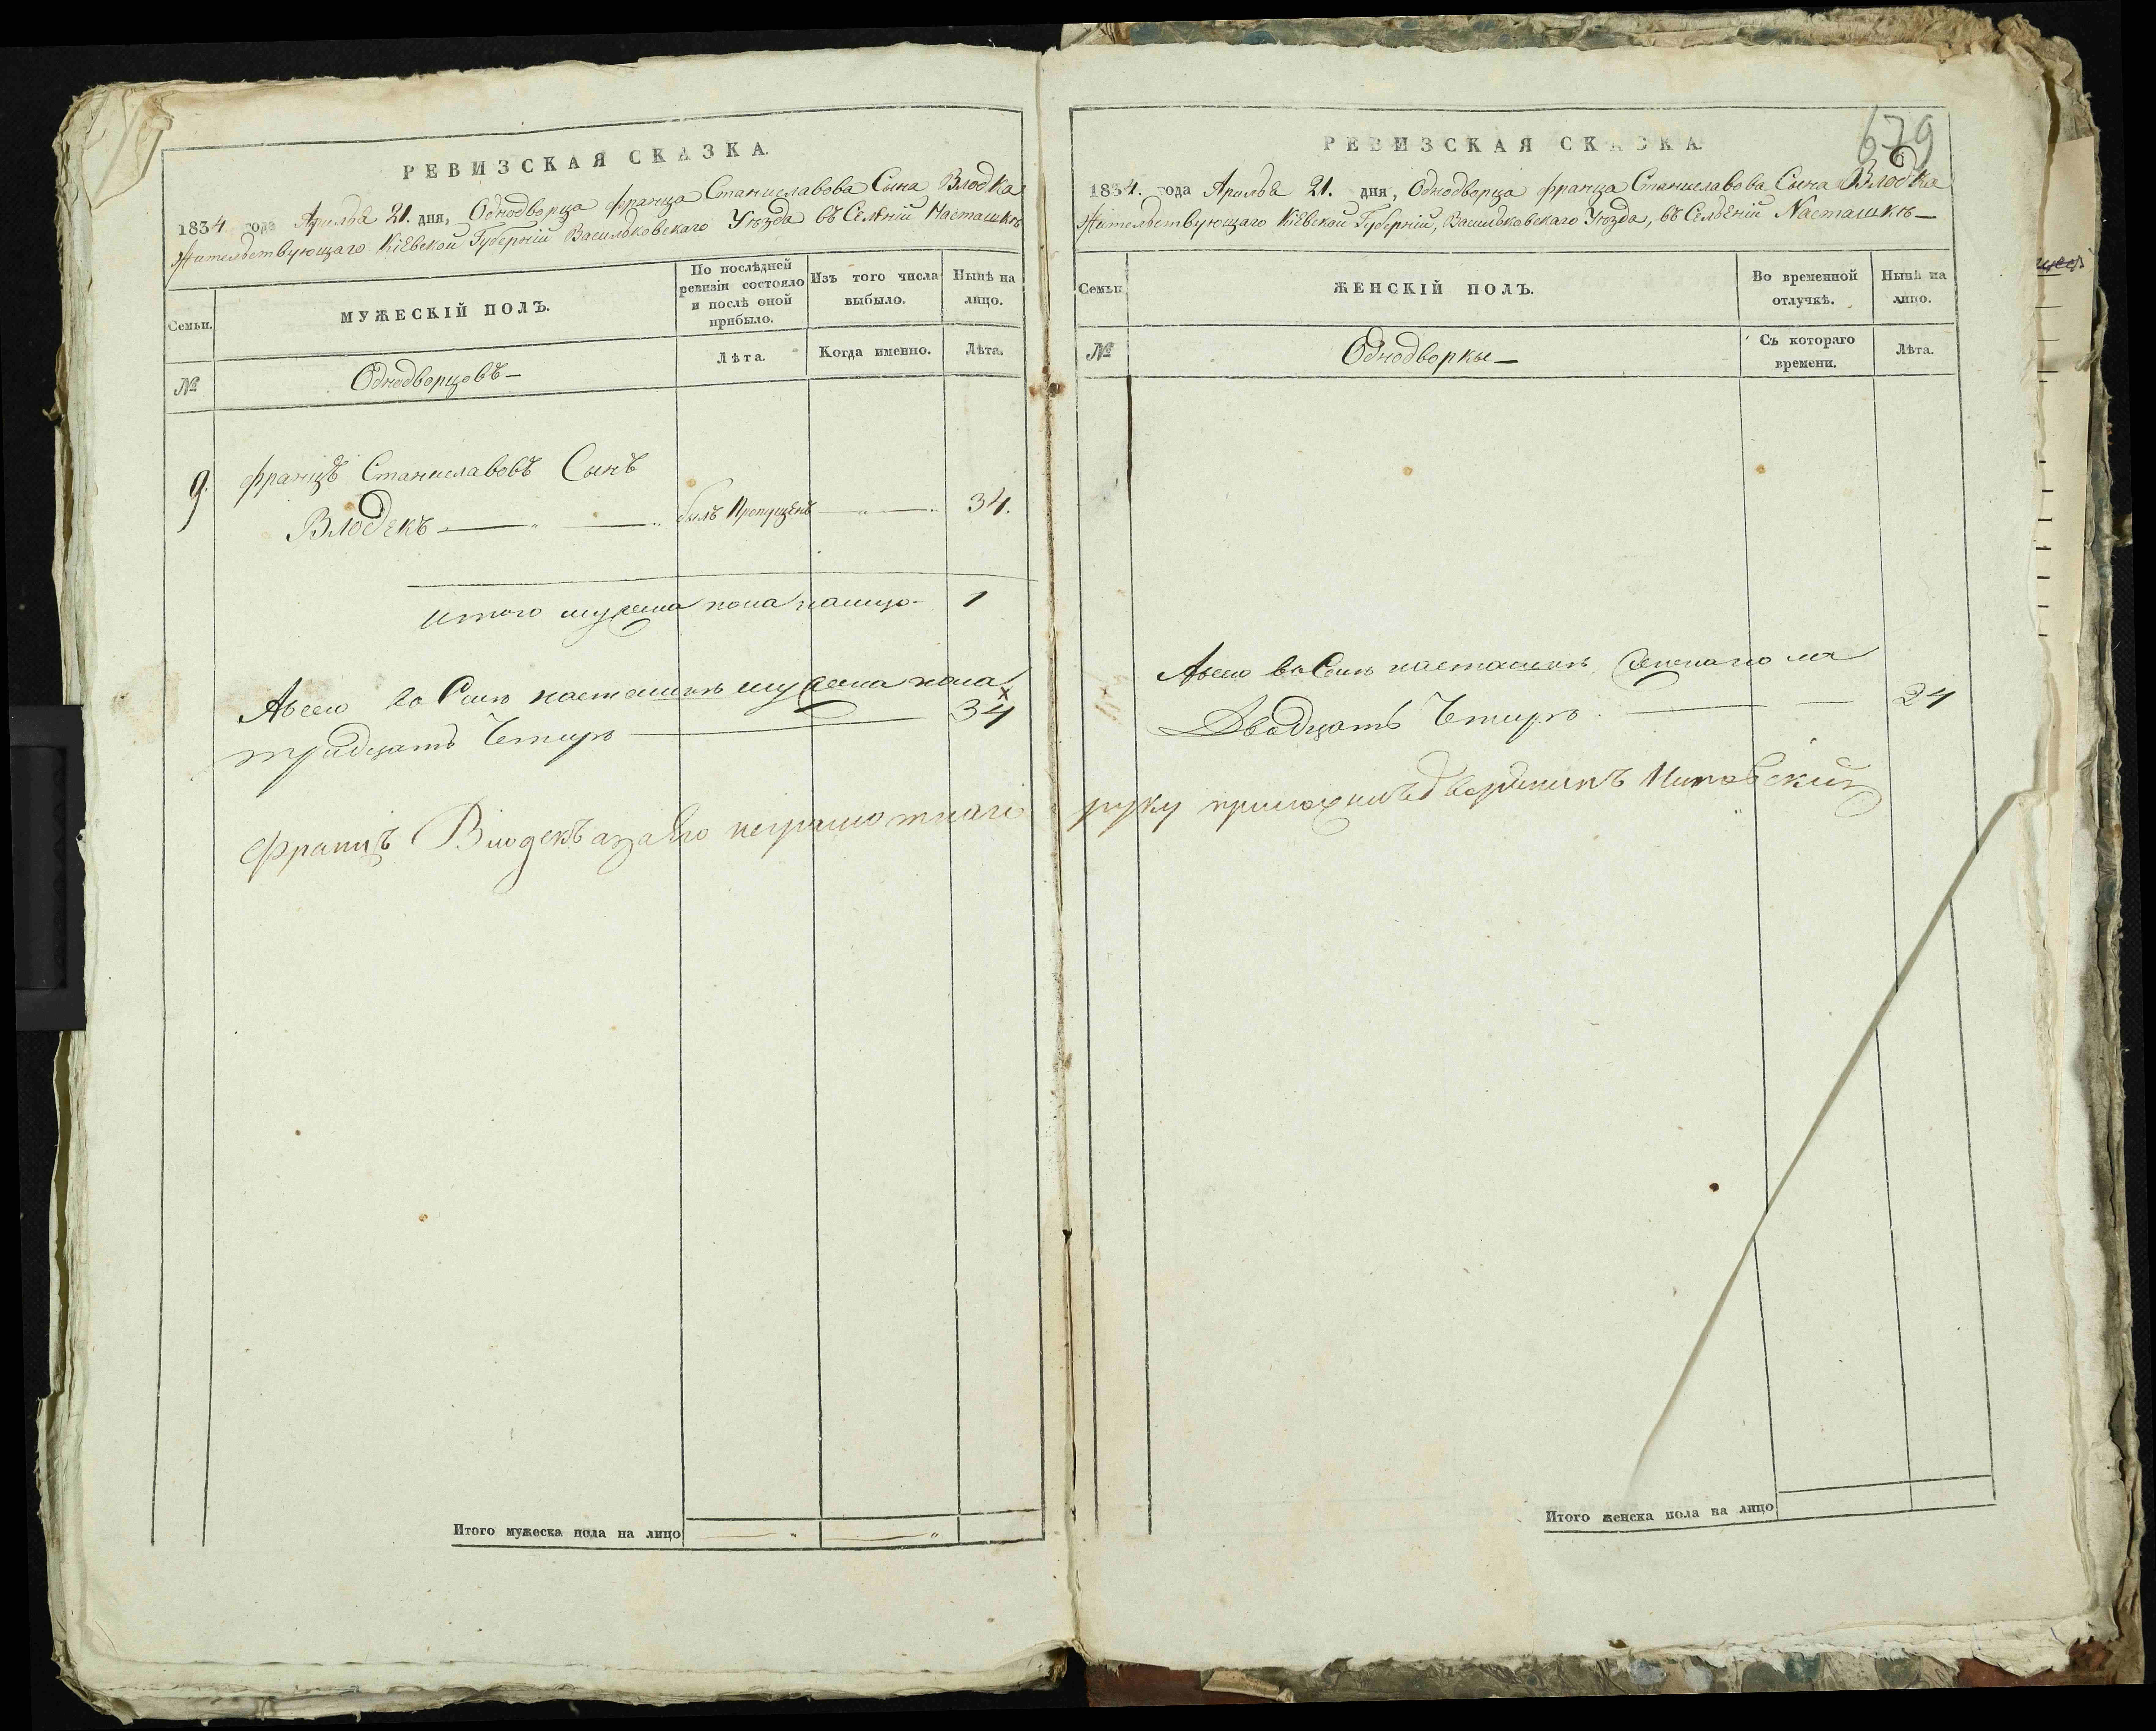 РЕВИЗСКАЯ СКАЗКА.
1834 года Апрѣля 21. дня, Однодворца Франца Станиславова Сына Влодка
Жительствующаго Кіевской Губерніи Васильковскаго Уѣзда въ Селеніи Насташкѣ
Семьи.
МУЖЕСКІЙ ПОЛЪ.
По послѣдней ревизіи состояло и послѣ оной прибыло.
Изъ того числа выбыло.
Нынѣ на лицо.
№
Однодворцовъ —
Лѣта.
Когда именно.
Лѣта.
9. Францъ Станиславовъ Сынъ
Влодекъ — былъ Пропущенъ — 34.
Итого мужеска пола налицо — 1
А всего въ Насташкѣ мужеска пола
тридцать Четыре — 34
Францъ Влодекъ а за его неграмотнаго
Итого мужеска пола на лицо
679
РЕВИЗСКАЯ СКАЗКА
1834. года Апрѣля 21. дня, Однодворца Франца Станиславова Сына Влодка
Жительствующаго Кіевской Губерніи, Васильковскаго Уѣзда, въ Селѣеніи Насташкѣ —
Семьи
ЖЕНСКІЙ ПОЛЪ.
Во временной отлучкѣ.
Нынѣ на лицо.
№
Однодворкы —
Съ котораго времени.
Лѣта.
А всего въ Насташкѣ
Двадцать Четыре — 24
руку приложилъ дворянинъ
Итого женска пола на лицо